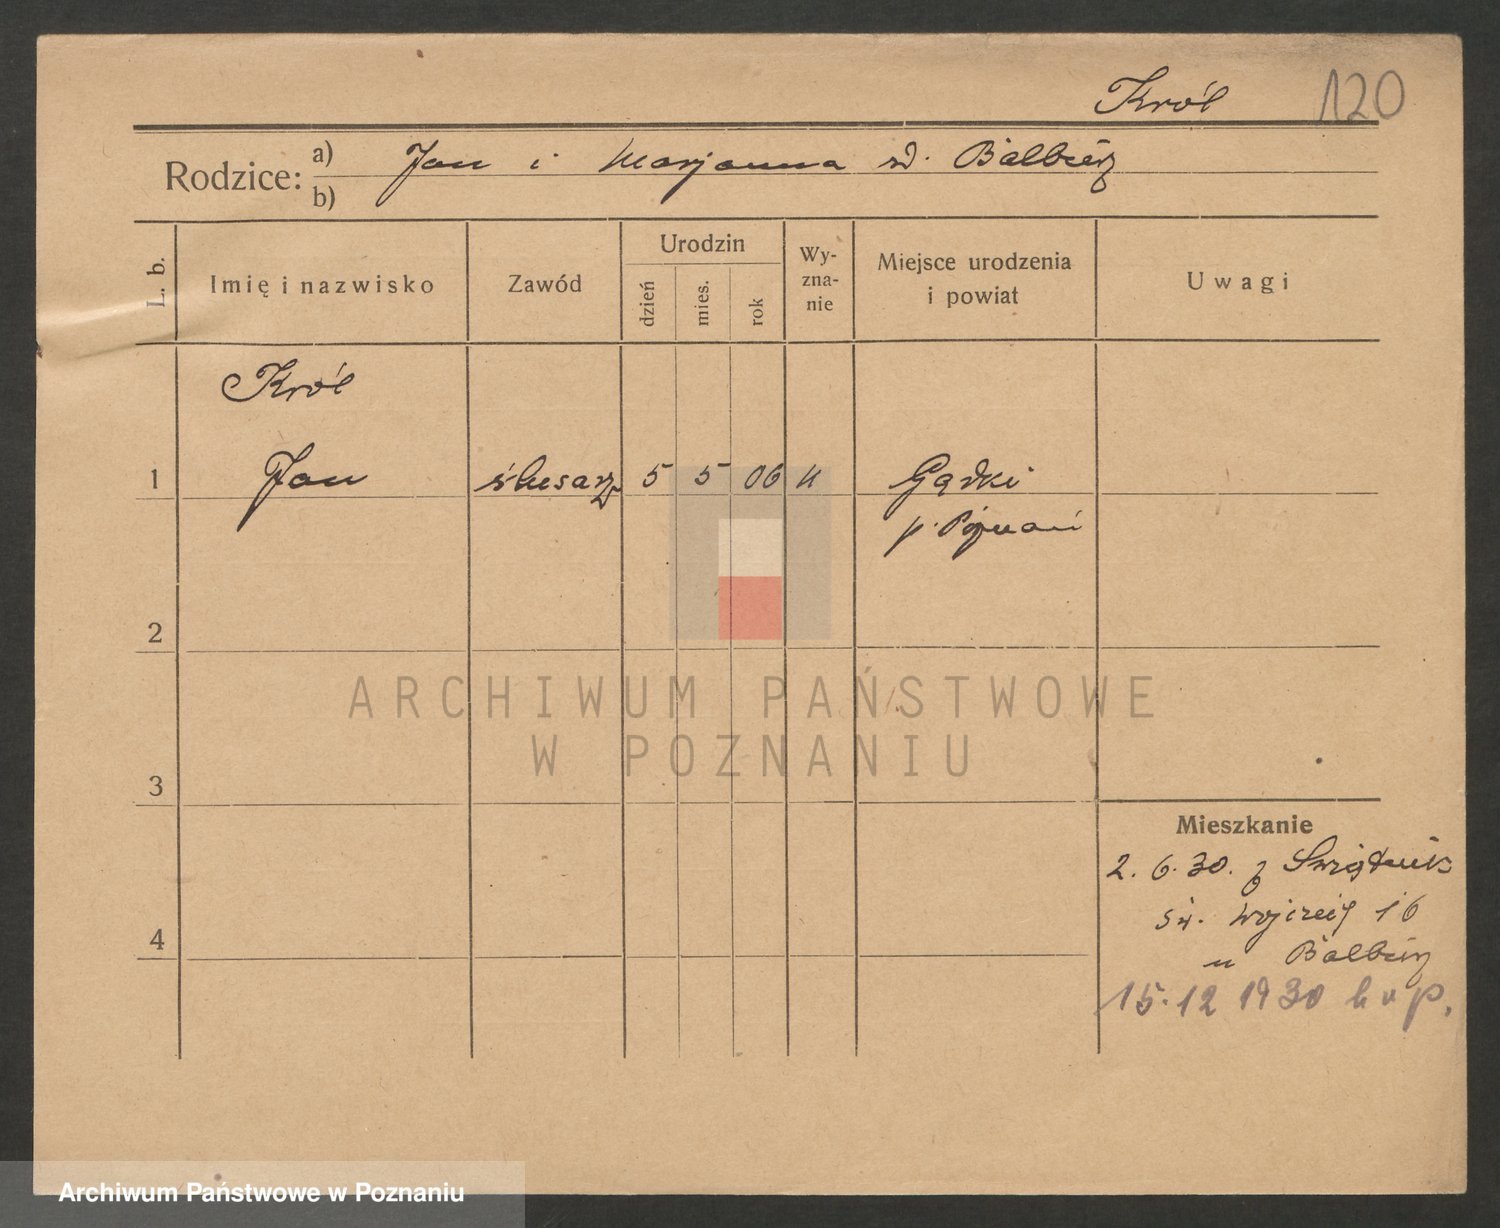 Król 120
Rodzice: a) Jan i Marjanna zd. Balbierz
b)
L. b.
Imię i nazwisko
Zawód
Urodzin
dzień
mies.
rok
Wy-
zna-
nie
Miejsce urodzenia
i powiat
Uwagi
Król
1 Jan ślusarz 5 5 06 k Gądki
p. Poznań
2
ARCHIWUM PAŃSTWOWE
W POZNANIU
3
Mieszkanie
2. 6. 30. z
św. Wojciech 16
4
u Balbierz
15. 12 1930
Archiwum Państwowe w Poznaniu